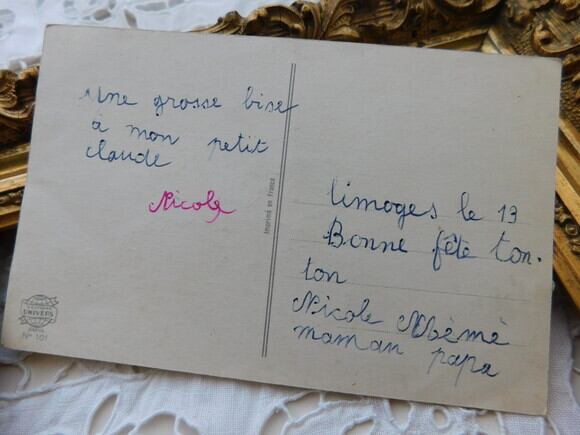 Une grosse bise
à mon petit
claude
Nicole
limoges le 13
Bonne fête ton.
ton
Nicole Mémé
maman papa
Imprimé en France
UNIVERS
PARIS
N° 101